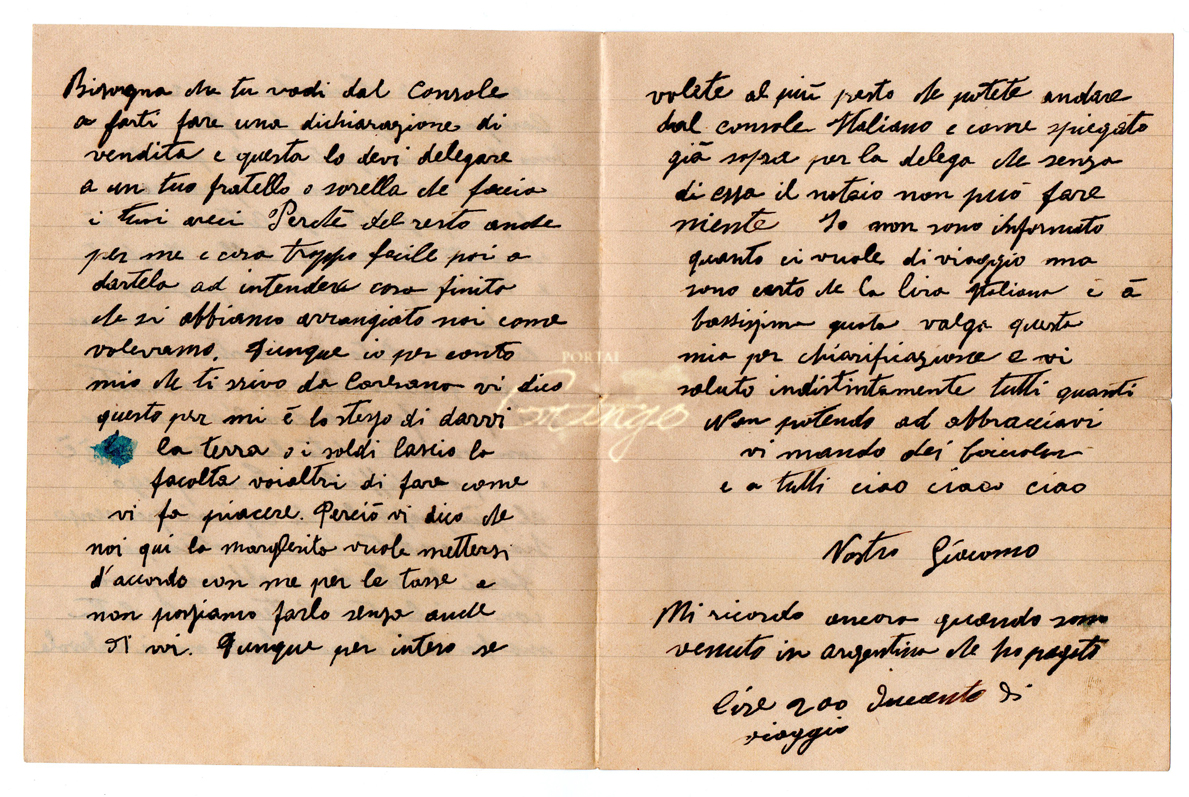 Bisogna che tu vadi dal Console
a farti fare una dichiarazione di
vendita e questa lo devi delegare
a un tuo fratello o sorella che faccia
i tuoi veci Perche del resto anche
per me e cosa troppo facile poi a
dartela ad intendere cosa finita
che si abbiamo arrangiato noi come
volevamo. Dunque io per conto
mio che ti scrivo da Corsano vi dico
questo per mi è lo stesso di darvi
la terra o i soldi lascio la
facolta voialtri di fare come
vi fa piacere. Perciò vi dico che
noi qui la margherita vuole mettersi
d'accordo con me per le tasse e
non possiamo farlo senza anche
di voi. Dunque per intero se
volete al più presto che potete andare
dal console Italiano e come spiegato
già sopra per la delega che senza
di essa il notaio non può fare
niente Io non sono informato
quanto ci vuole di viaggio ma
sono certo che la lira Italiana è à
bassissima questa valga questa
mia per chiarificazione e vi
saluto indistintamente tutti quanti
Non potendo ad abbracciarvi
vi mando dei
e a tutti ciao ciao ciao
Vostro Giacomo
Mi ricordo ancora quando sono
venuto in argentina che ho pagato
lire 200 Duecento di
viaggio
PORTAL
Gringo